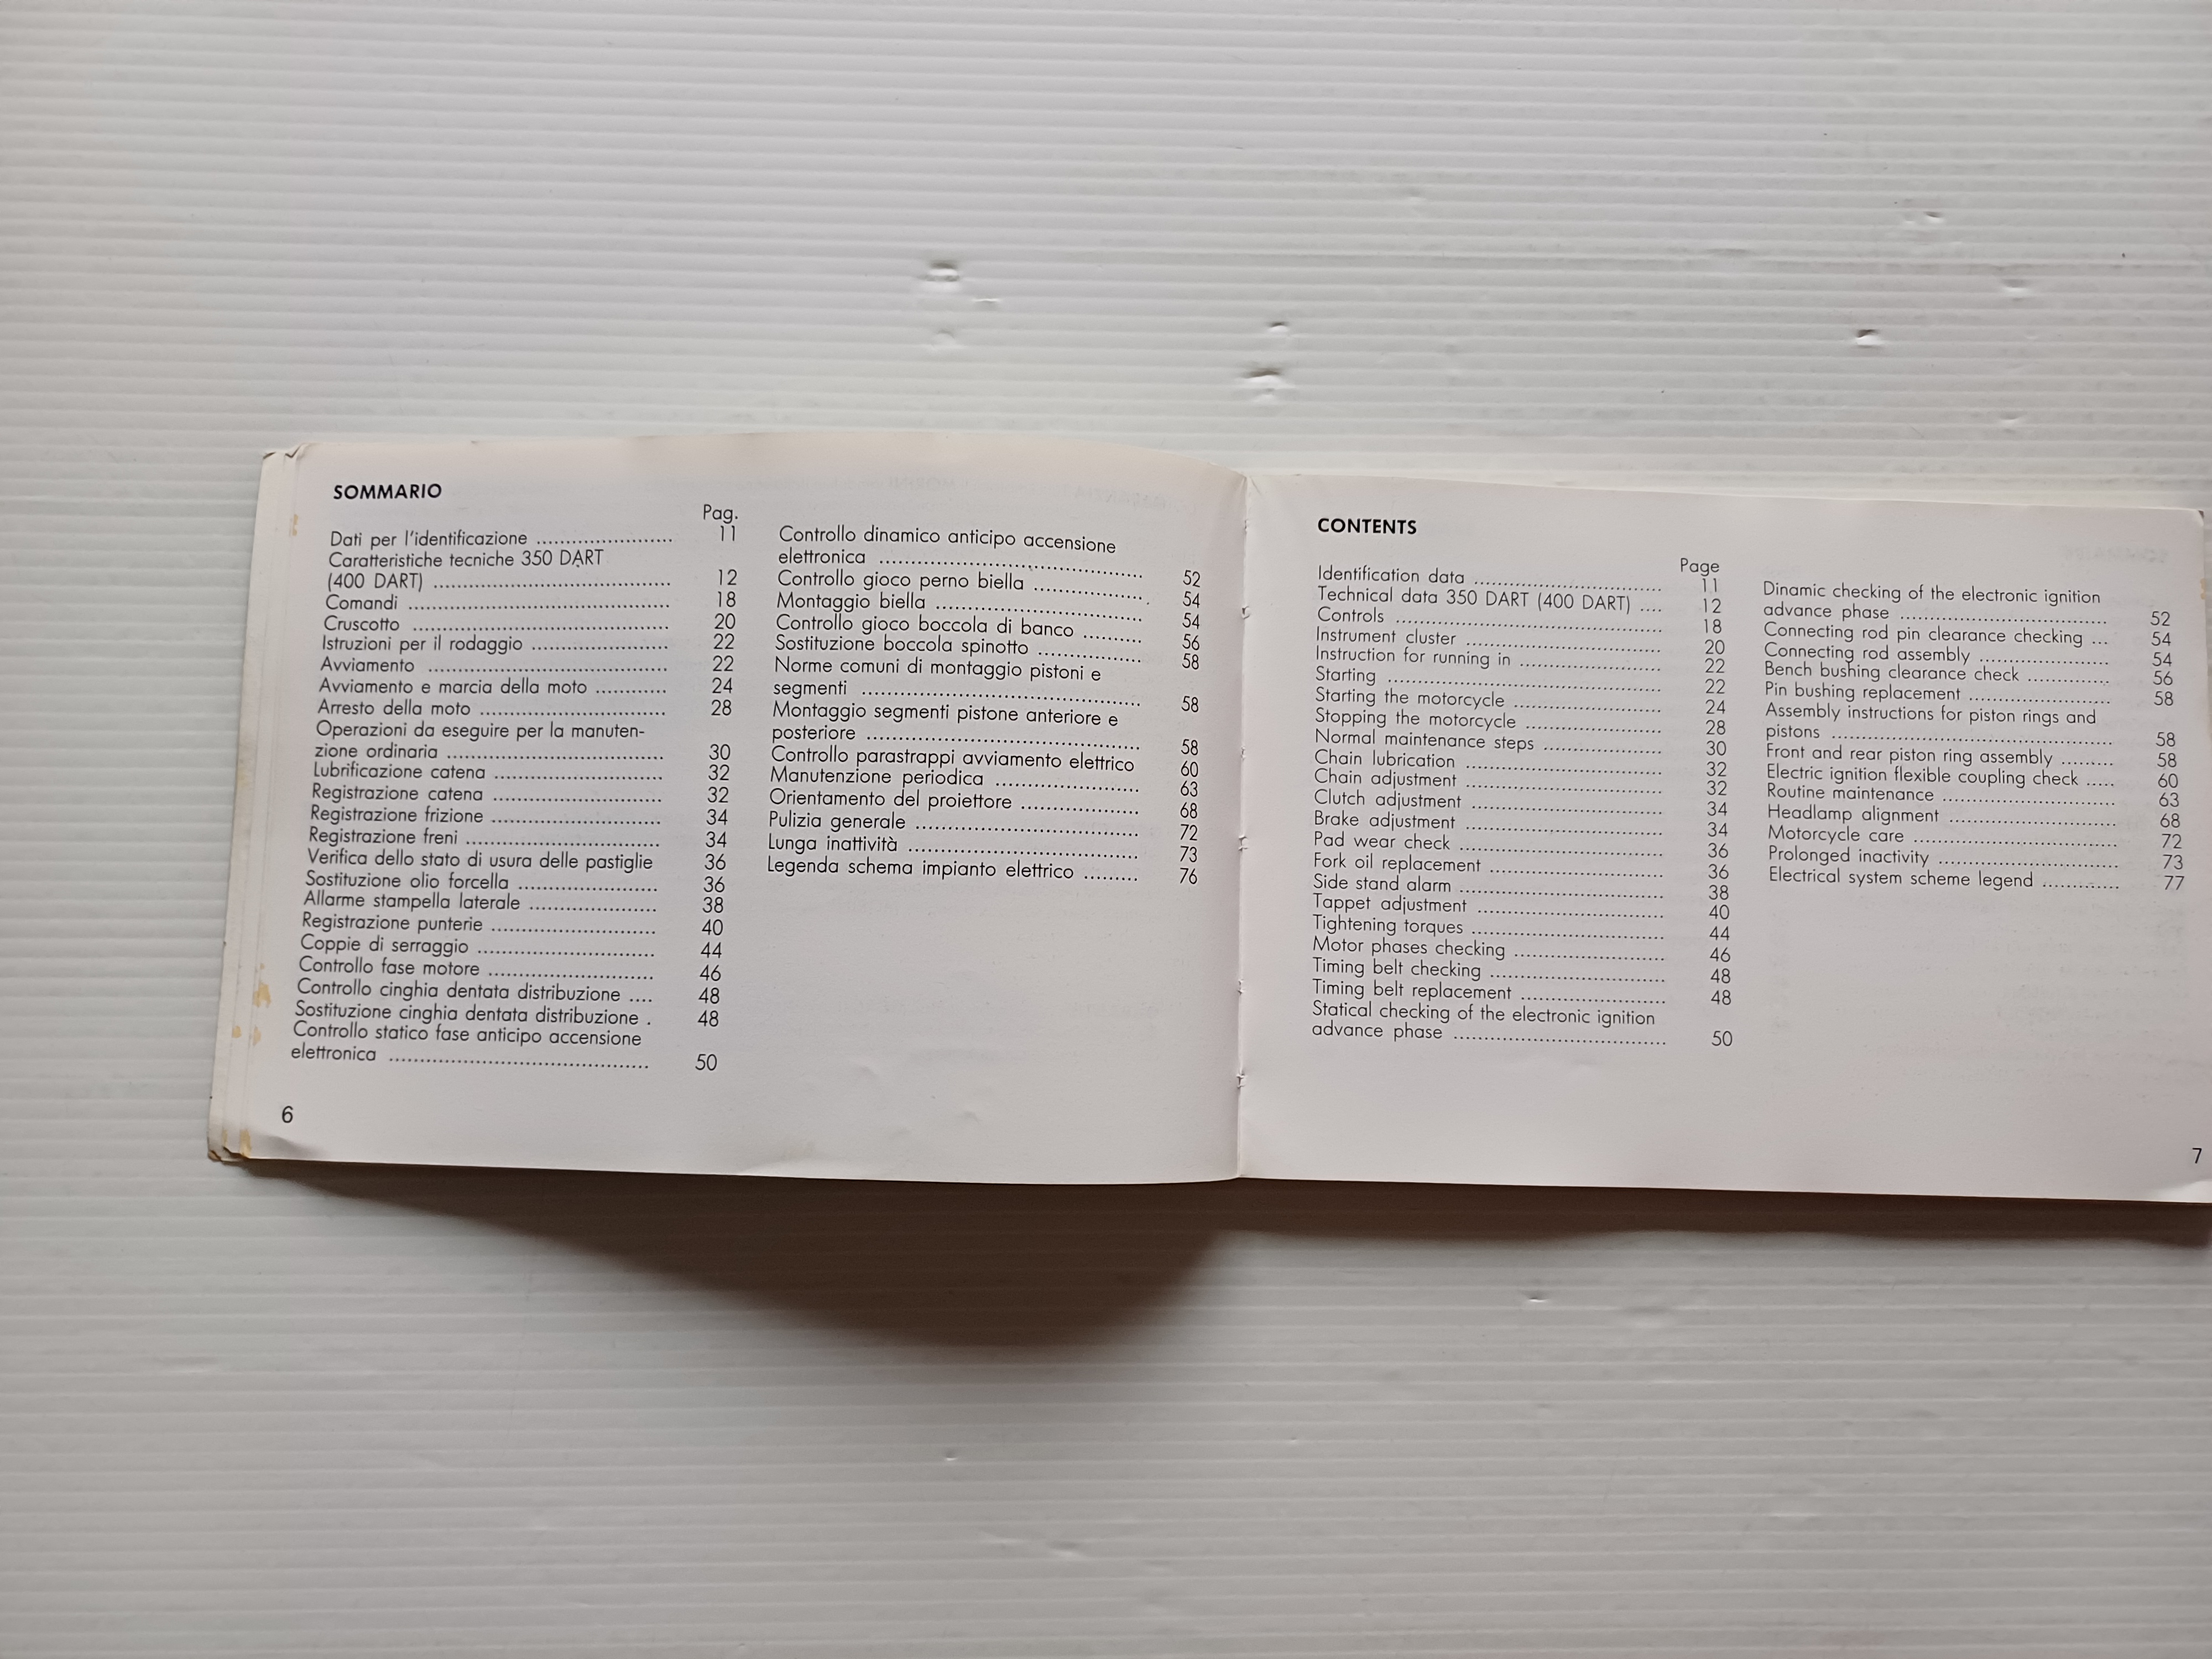 SOMMARIO
Pag.
Dati per l'identificazione ....................... 11
Caratteristiche tecniche 350 DART
(400 DART) ........................................ 12
Comandi ............................................ 18
Cruscotto ........................................... 20
Istruzioni per il rodaggio ....................... 22
Avviamento ......................................... 22
Avviamento e marcia della moto ............ 24
Arresto della moto ................................ 28
Operazioni da eseguire per la manuten-
zione ordinaria .................................... 30
Lubrificazione catena ............................ 32
Registrazione catena ............................. 32
Registrazione frizione ............................ 34
Registrazione freni ................................ 34
Verifica dello stato di usura delle pastiglie 36
Sostituzione olio forcella ........................ 36
Allarme stampella laterale ...................... 38
Registrazione punterie ............................ 40
Coppie di serraggio .............................. 44
Controllo fase motore ............................ 46
Controllo cinghia dentata distribuzione .... 48
Sostituzione cinghia dentata distribuzione . 48
Controllo statico fase anticipo accensione
elettronica ............................................ 50
6
Controllo dinamico anticipo accensione
elettronica ............................................ 52
Controllo gioco perno biella ................... 54
Montaggio biella ................................... 54
Controllo gioco boccola di banco .......... 56
Sostituzione boccola spinotto .................. 58
Norme comuni di montaggio pistoni e
segmenti ............................................... 58
Montaggio segmenti pistone anteriore e
posteriore .............................................. 58
Controllo parastrappi avviamento elettrico 60
Manutenzione periodica ......................... 63
Orientamento del proiettore .................... 68
Pulizia generale ...................................... 72
Lunga inattività ....................................... 73
Legenda schema impianto elettrico ......... 76
CONTENTS
Page
Identification data ................................ 11
Technical data 350 DART (400 DART) .... 12
Controls .............................................. 18
Instrument cluster .................................. 20
Instruction for running in ........................ 22
Starting ............................................... 22
Starting the motorcycle ........................... 24
Stopping the motorcycle ......................... 28
Normal maintenance steps ..................... 30
Chain lubrication ................................... 32
Chain adjustment ................................... 32
Clutch adjustment .................................. 34
Brake adjustment ................................... 34
Pad wear check .................................... 36
Fork oil replacement .............................. 36
Side stand alarm ................................... 38
Tappet adjustment ................................. 40
Tightening torques ................................. 44
Motor phases checking .......................... 46
Timing belt checking .............................. 48
Timing belt replacement ......................... 48
Statical checking of the electronic ignition
advance phase ..................................... 50
Dinamic checking of the electronic ignition
advance phase .................................... 52
Connecting rod pin clearance checking ... 54
Connecting rod assembly ....................... 54
Bench bushing clearance check .............. 56
Pin bushing replacement ........................ 58
Assembly instructions for piston rings and
pistons ................................................ 58
Front and rear piston ring assembly ......... 58
Electric ignition flexible coupling check ..... 60
Routine maintenance ............................. 63
Headlamp alignment ............................. 68
Motorcycle care ................................... 72
Prolonged inactivity ............................... 73
Electrical system scheme legend .............. 77
7